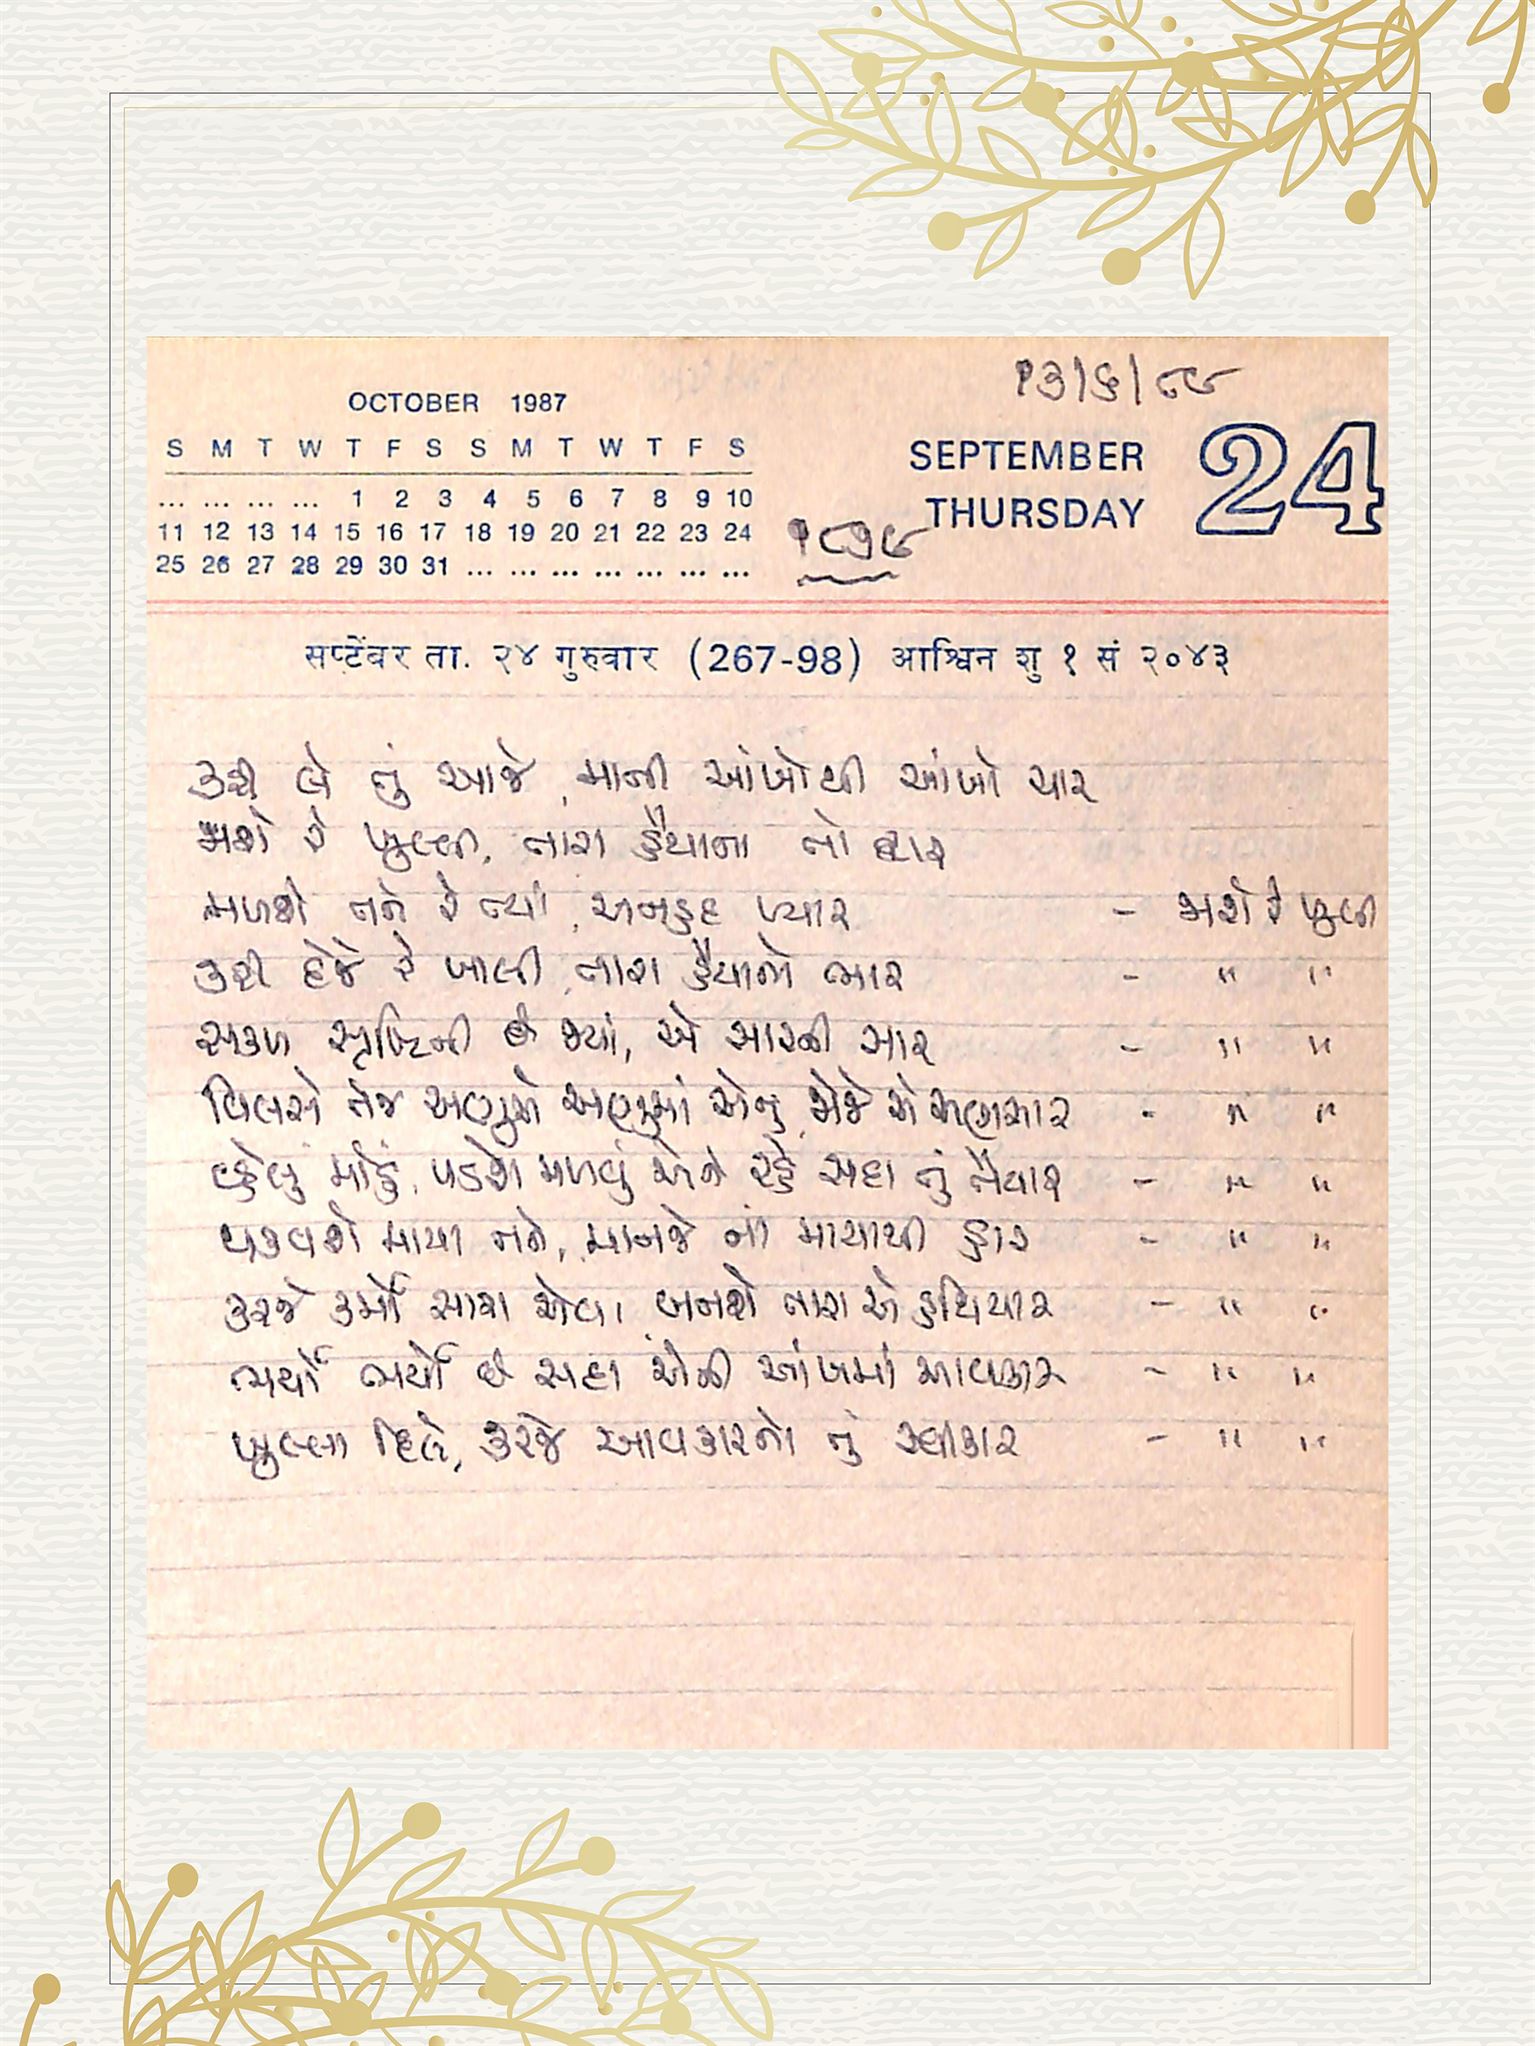 ૧૩/૬/૮૯
OCTOBER 1987
S M T W T F S S M T W T F S
... ... ... ... 1 2 3 4 5 6 7 8 9 10
11 12 13 14 15 16 17 18 19 20 21 22 23 24
25 26 27 28 29 30 31 ... ... ... ... ... ... ...
SEPTEMBER
THURSDAY
24
૧૮૭૯
सप्टेंबर ता. २४ गुरुवार (267-98) आश्विन शु १ सं २०४३
કરી લે તું આજે, માની આંખોથી આંખો ચાર
જાશે રે ખુલ્લી, તારા હૈયાના તો દ્વાર
મળશે તને રે ત્યાં, અનહદ પ્યાર - જાશે રે ખુલી
કરી દેજે રે ખાલી, તારા હૈયાનો ભાર - " "
સકળ સૃષ્ટિની છે જ્યાં, એ સારની સાર - " "
વિલસે તેજ અણુએ અણુમાં એનું, જોજે એ ઝળકાર - " "
વ્હેલું મોડું, પડશે મળવું એને રહે સદા તું તૈયાર - " "
થકવશે માયા તને, માનજે ના માયાથી હાર - " "
કરજે કર્મો સારા એવા, બનશે તારા એ હથિયાર - " "
ભર્યો ભર્યો છે સદા એની આંખમાં આવકાર - " "
ખુલ્લા દિલે, કરજે આવકારનો તું સ્વીકાર - " "